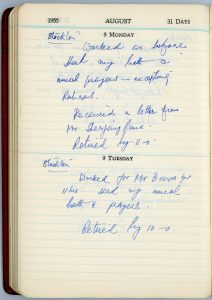 1955 AUGUST 31 DAYS
Stockton
8 MONDAY
Worked as before
Had my bath &
usual prayers –
Received a letter from
Mr.
Retired by 11-0
9 TUESDAY
Stockton
Worked for Mr Bawa for
11 hrs. Had my usual
bath & prayers.
Retired by 10-0